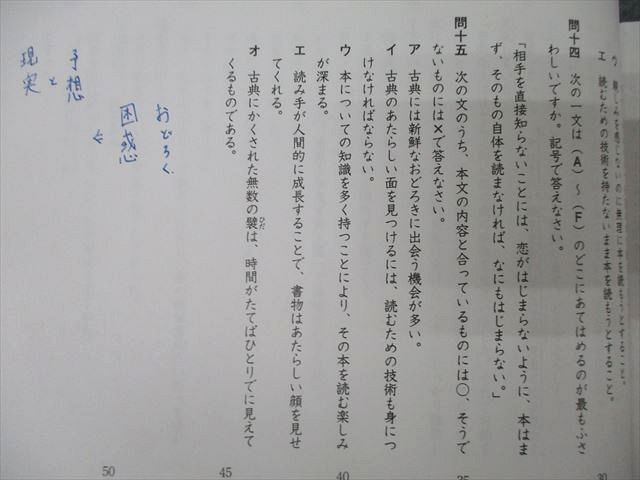 ウ 親しみを感じないのに無理に本を読もうとすること。
エ 読むための技術を持たないまま本を読もうとすること。
問十四 次の一文は（A）～（F）のどこにあてはめるのが最もふさ
わしいですか。記号で答えなさい。
「相手を直接知らないことには、恋がはじまらないように、本はま
ず、そのもの自体を読まなければ、なにもはじまらない。」
問十五 次の文のうち、本文の内容と合っているものには○、そうで
ないものには×で答えなさい。
ア 古典には新鮮なおどろきに出会う機会が多い。
イ 古典のあたらしい面を見つけるには、読むための技術も身につ
けなければならない。
ウ 本についての知識を多く持つことにより、その本を読む楽しみ
が深まる。
エ 読み手が人間的に成長することで、書物はあたらしい顔を見せ
てくれる。
オ 古典にかくされた無数の襞は、時間がたてばひとりでに見えて
ひだ
くるものである。
おどろく
困惑
予想
と
現実
30
35
40
45
50